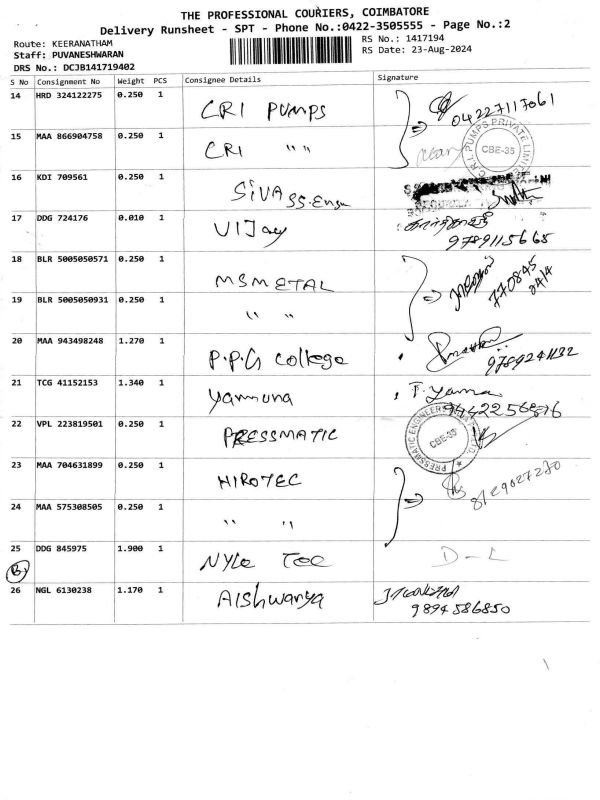 THE PROFESSIONAL COURIERS, COIMBATORE
Delivery Runsheet - SPT - Phone No.:0422-3505555 - Page No.:2
Route: KEERANATHAM
RS No.: 1417194
Staff: PUVANESHWARAN
RS Date: 23-Aug-2024
DRS No.: DCJB141719402
S No Consignment No Weight PCS Consignee Details Signature
14 HRD 324122275 0.250 1 CRI PUMPS 04227117061
15 MAA 866904758 0.250 1 CRI " "
C.R.I. PUMPS PRIVATE LIMITED
CBE-35
16 KDI 709561 0.250 1 SIVA SS.Engg
17 DDG 724176 0.010 1 VIJay 9789115665
18 BLR 5005050571 0.250 1 MSMETAL 770845
19 BLR 5005050931 0.250 1 " "
20 MAA 943498248 1.270 1 P.P.G College 9789241132
21 TCG 41152153 1.340 1 Yamuna
22 VPL 223819501 0.250 1 PRESSMATIC
PRESSMATIC ENGINEERS
CBE-35
23 MAA 704631899 0.250 1 HIROTEC
24 MAA 575308505 0.250 1 " "
25 DDG 845975 1.900 1 NYLO TEC D-L
By
26 NGL 6130238 1.170 1 AIShwarya 9894586850